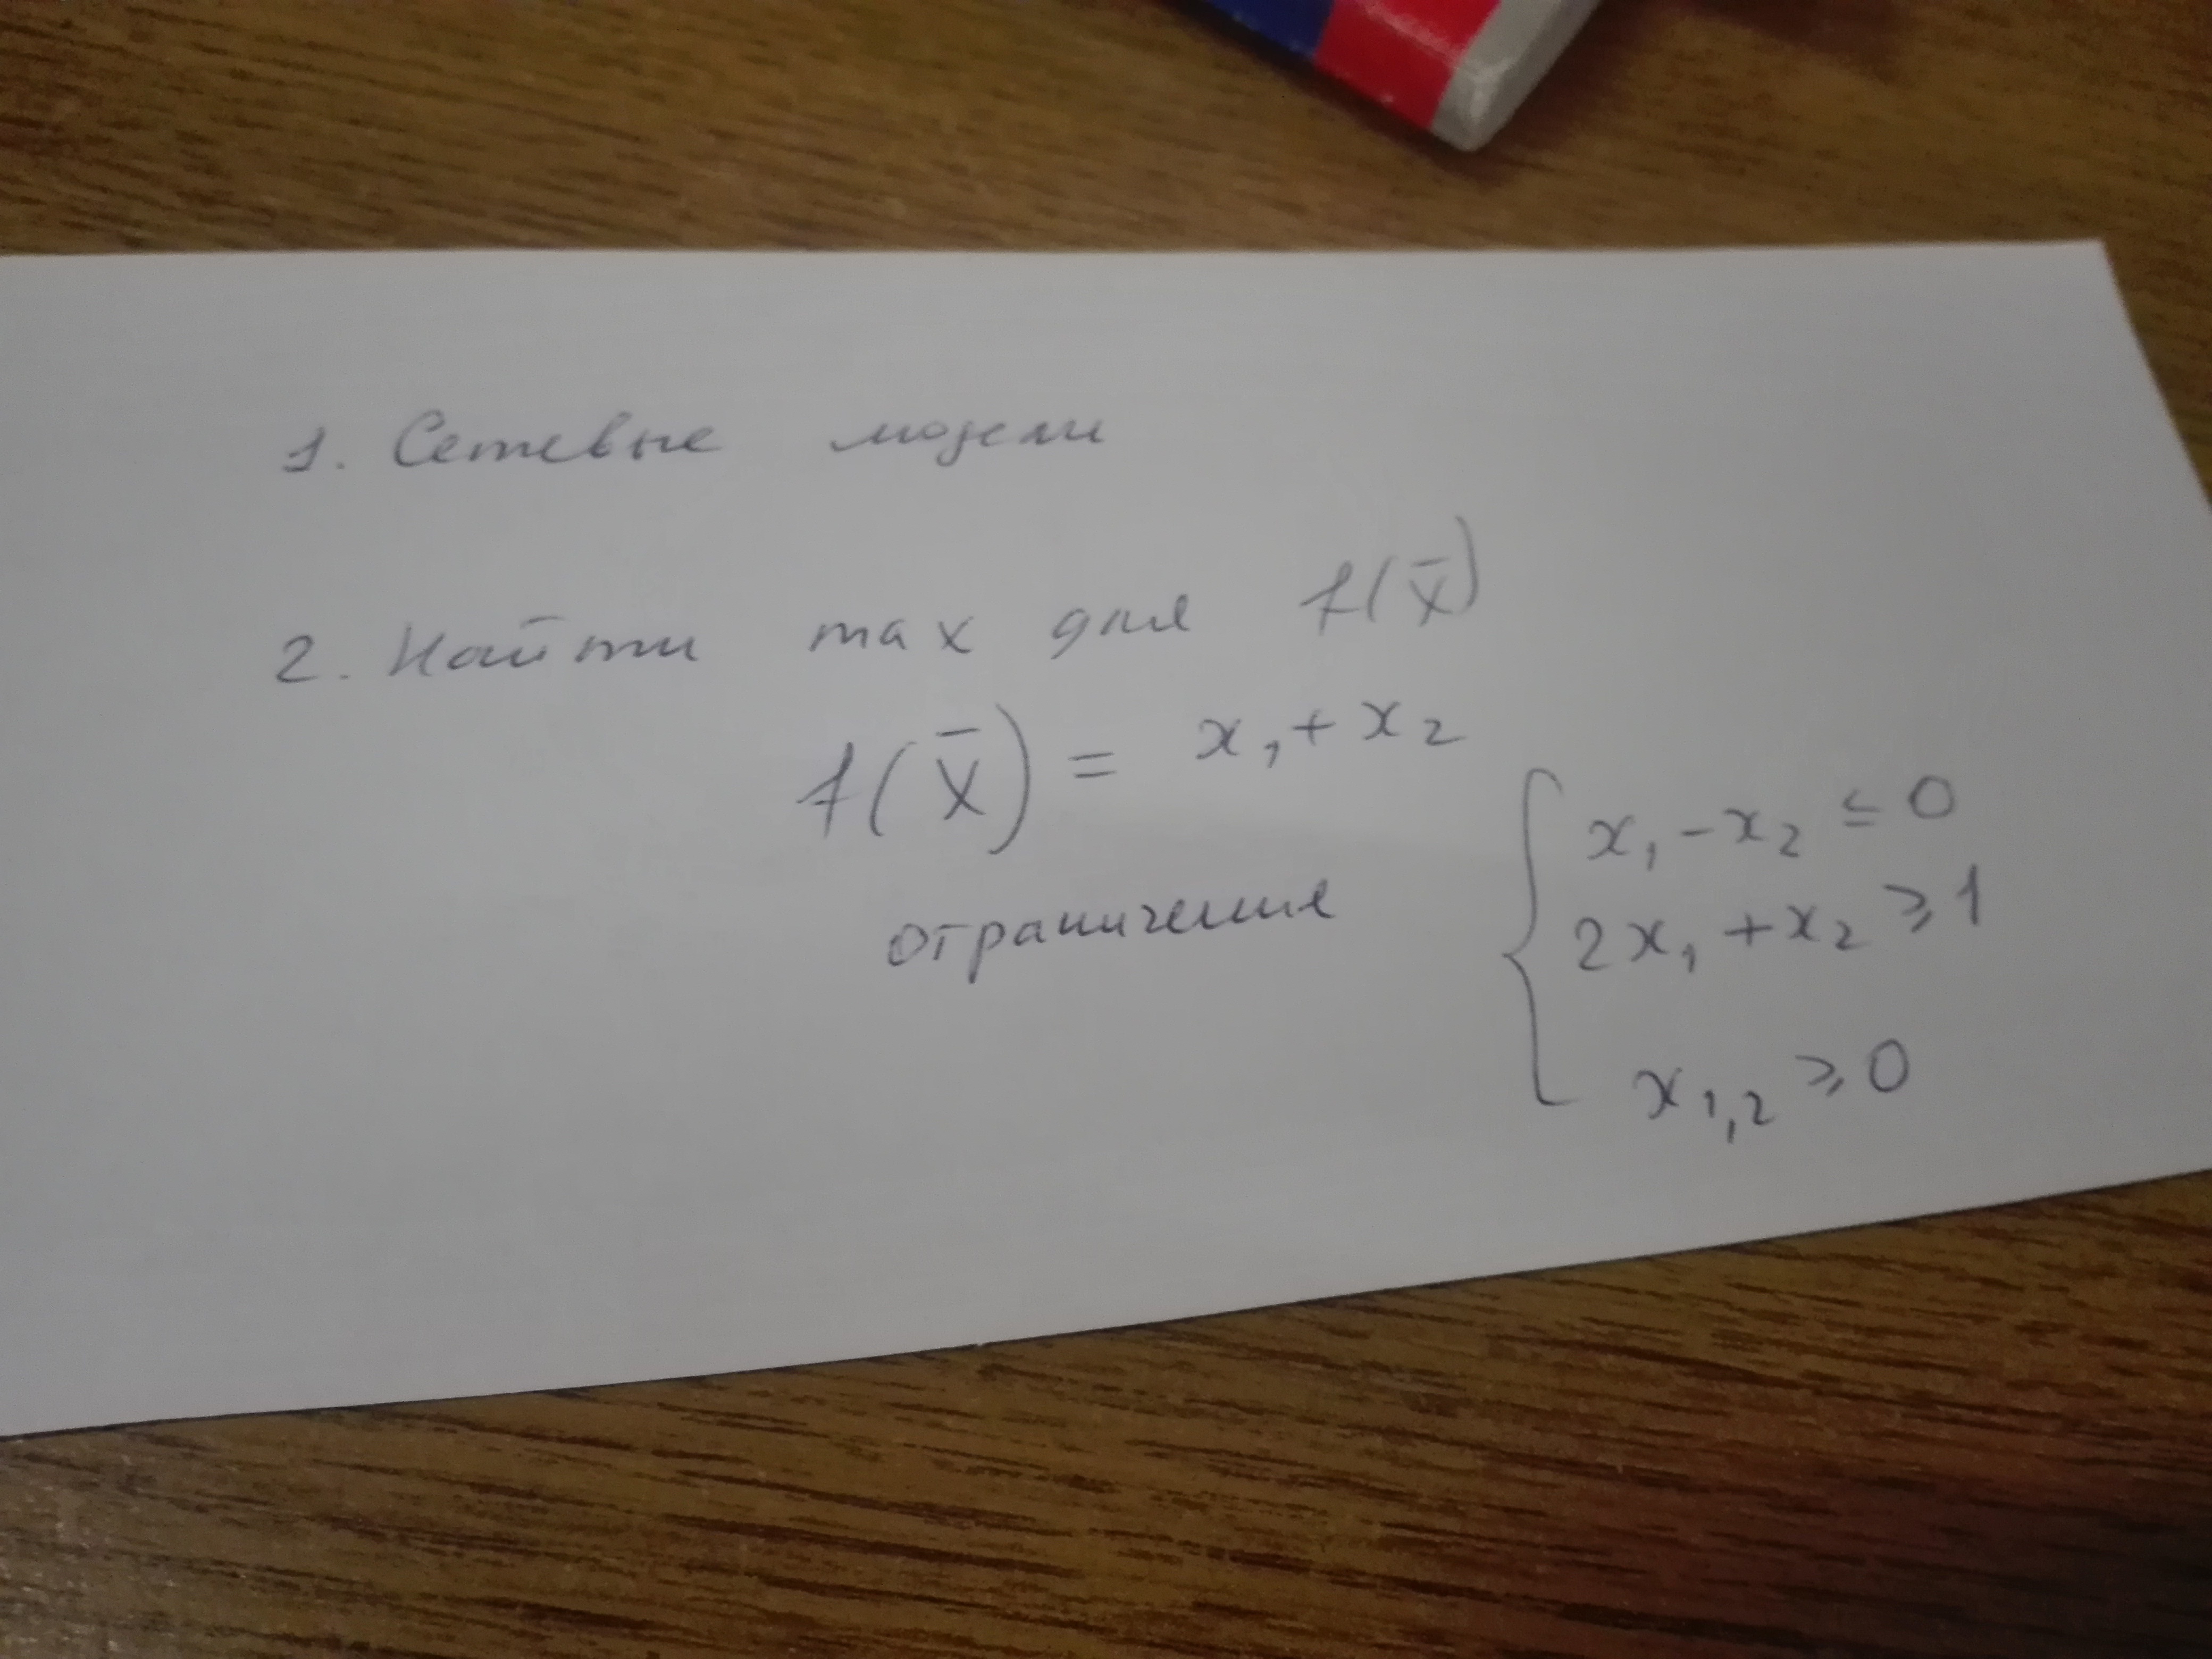 1. Сетевые модели
2. Найти max для f(x̄)
f(x̄) = x₁ + x₂
ограничения
x₁ - x₂ ≤ 0
2x₁ + x₂ ⩾ 1
x₁,₂ ⩾ 0